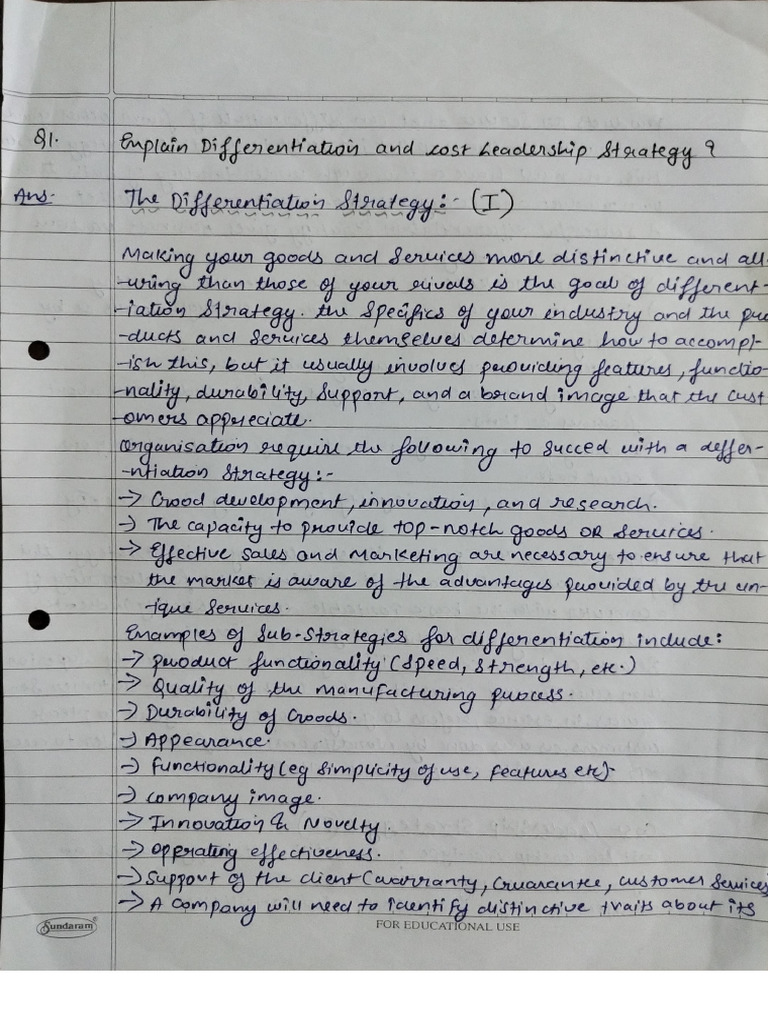 Q1. Explain Differentiation and cost Leadership Strategy ?
Ans:- The Differentiation Strategy:- (I)
Making your goods and services more distinctive and all-
-uring than those of your rivals is the goal of different-
-iation Strategy. the Specifics of your industry and the pro
-ducts and services themselves determine how to accompl-
-ish this, but it usually involves providing features, functio-
-nality, durability, support, and a brand image that the cust
-omers appreciate.
Organisation require the following to succed with a deffer-
-ntiation Strategy:-
→ Good development, innovation, and research.
→ The capacity to provide top-notch goods OR services.
→ Effective sales and Marketing are necessary to ensure that
the market is aware of the advantages provided by the un-
-ique services.
Examples of Sub-Strategies for differentiation include:
→ product functionality (Speed, Strength, etc.)
→ Quality of the manufacturing process.
→ Durability of Goods.
→ Appearance.
→ functionality (eg simplicity of use, features etc)-
→ company image.
→ Innovation & Novelty.
→ opprating effectiveness.
→ Support of the client (warranty, Guarantee, customer services
→ A Company will need to identify distinctive traits about its
Sundaram®
FOR EDUCATIONAL USE